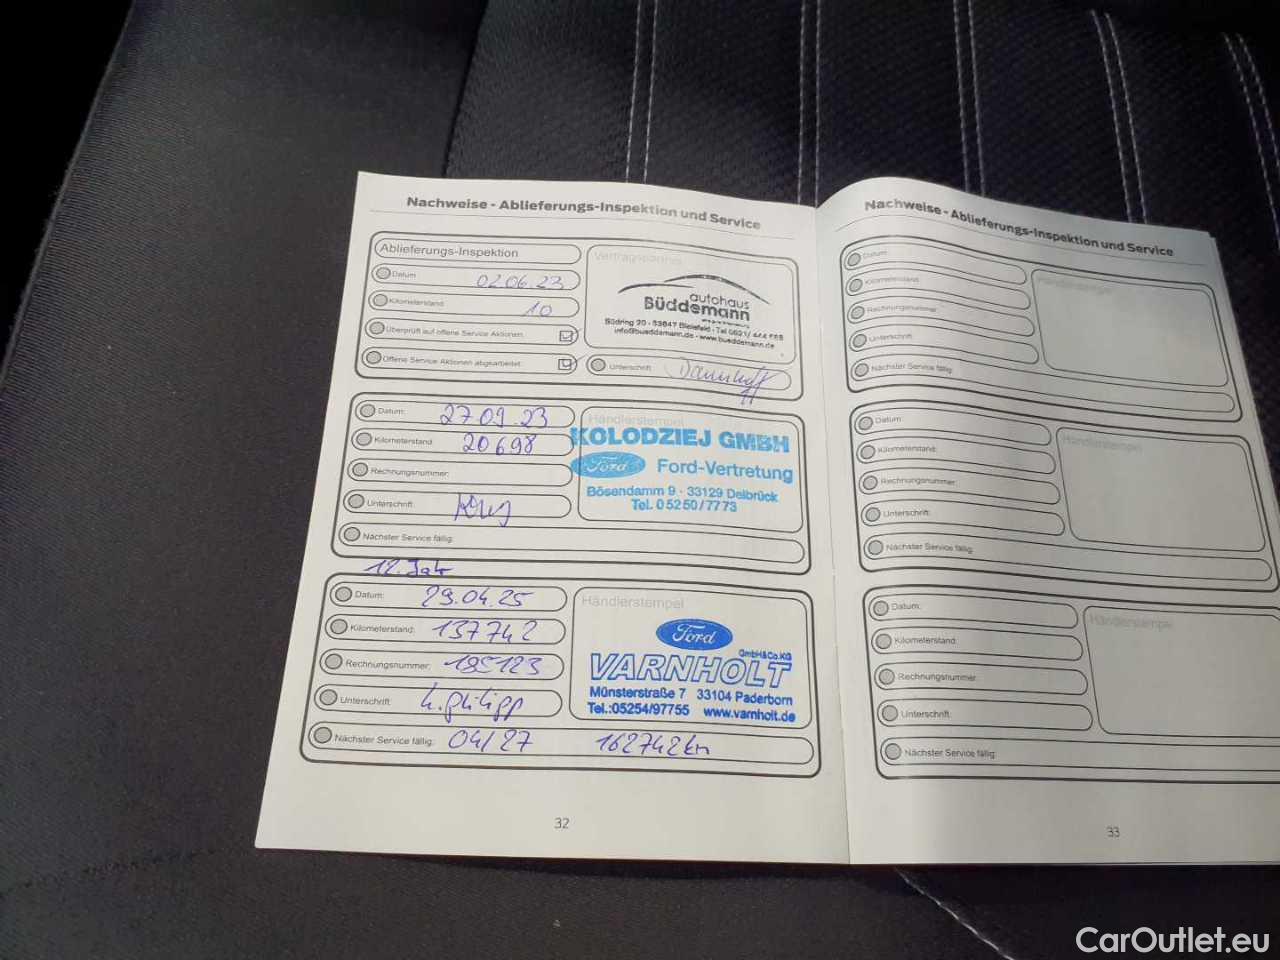 Nachweise - Ablieferungs-Inspektion und Service
Ablieferungs-Inspektion
Datum: 02.06.23
Kilometerstand: 10
Überprüft auf offene Service Aktionen:
Offene Service Aktionen abgearbeitet:
Vertragspartner
autohaus
Büddemann
Südring 20 - 33647 Bielefeld - Tel 0521/
info@bueddemann.de - www.bueddemann.de
Unterschrift:
Datum: 27.09.23
Kilometerstand: 20698
Rechnungsnummer:
Unterschrift:
Nächster Service fällig:
Händlerstempel
KOLODZIEJ GMBH
Ford Ford-Vertretung
Bösendamm 9 · 33129 Delbrück
Tel. 05250/7773
12. Jahr
Datum: 29.04.25
Kilometerstand: 137742
Rechnungsnummer: 195123
Unterschrift: h. philipp
Nächster Service fällig: 04/27 162742km
Händlerstempel
Ford
GmbH&Co.KG
VARNHOLT
Münsterstraße 7 33104 Paderborn
Tel.:05254/97755 www.varnholt.de
32
Nachweise - Ablieferungs-Inspektion und Service
Datum:
Kilometerstand:
Rechnungsnummer:
Unterschrift:
Nächster Service fällig:
Händlerstempel
Datum:
Kilometerstand:
Rechnungsnummer:
Unterschrift:
Nächster Service fällig:
Händlerstempel
Datum:
Kilometerstand:
Rechnungsnummer:
Unterschrift:
Nächster Service fällig:
Händlerstempel
33
CarOutlet.eu